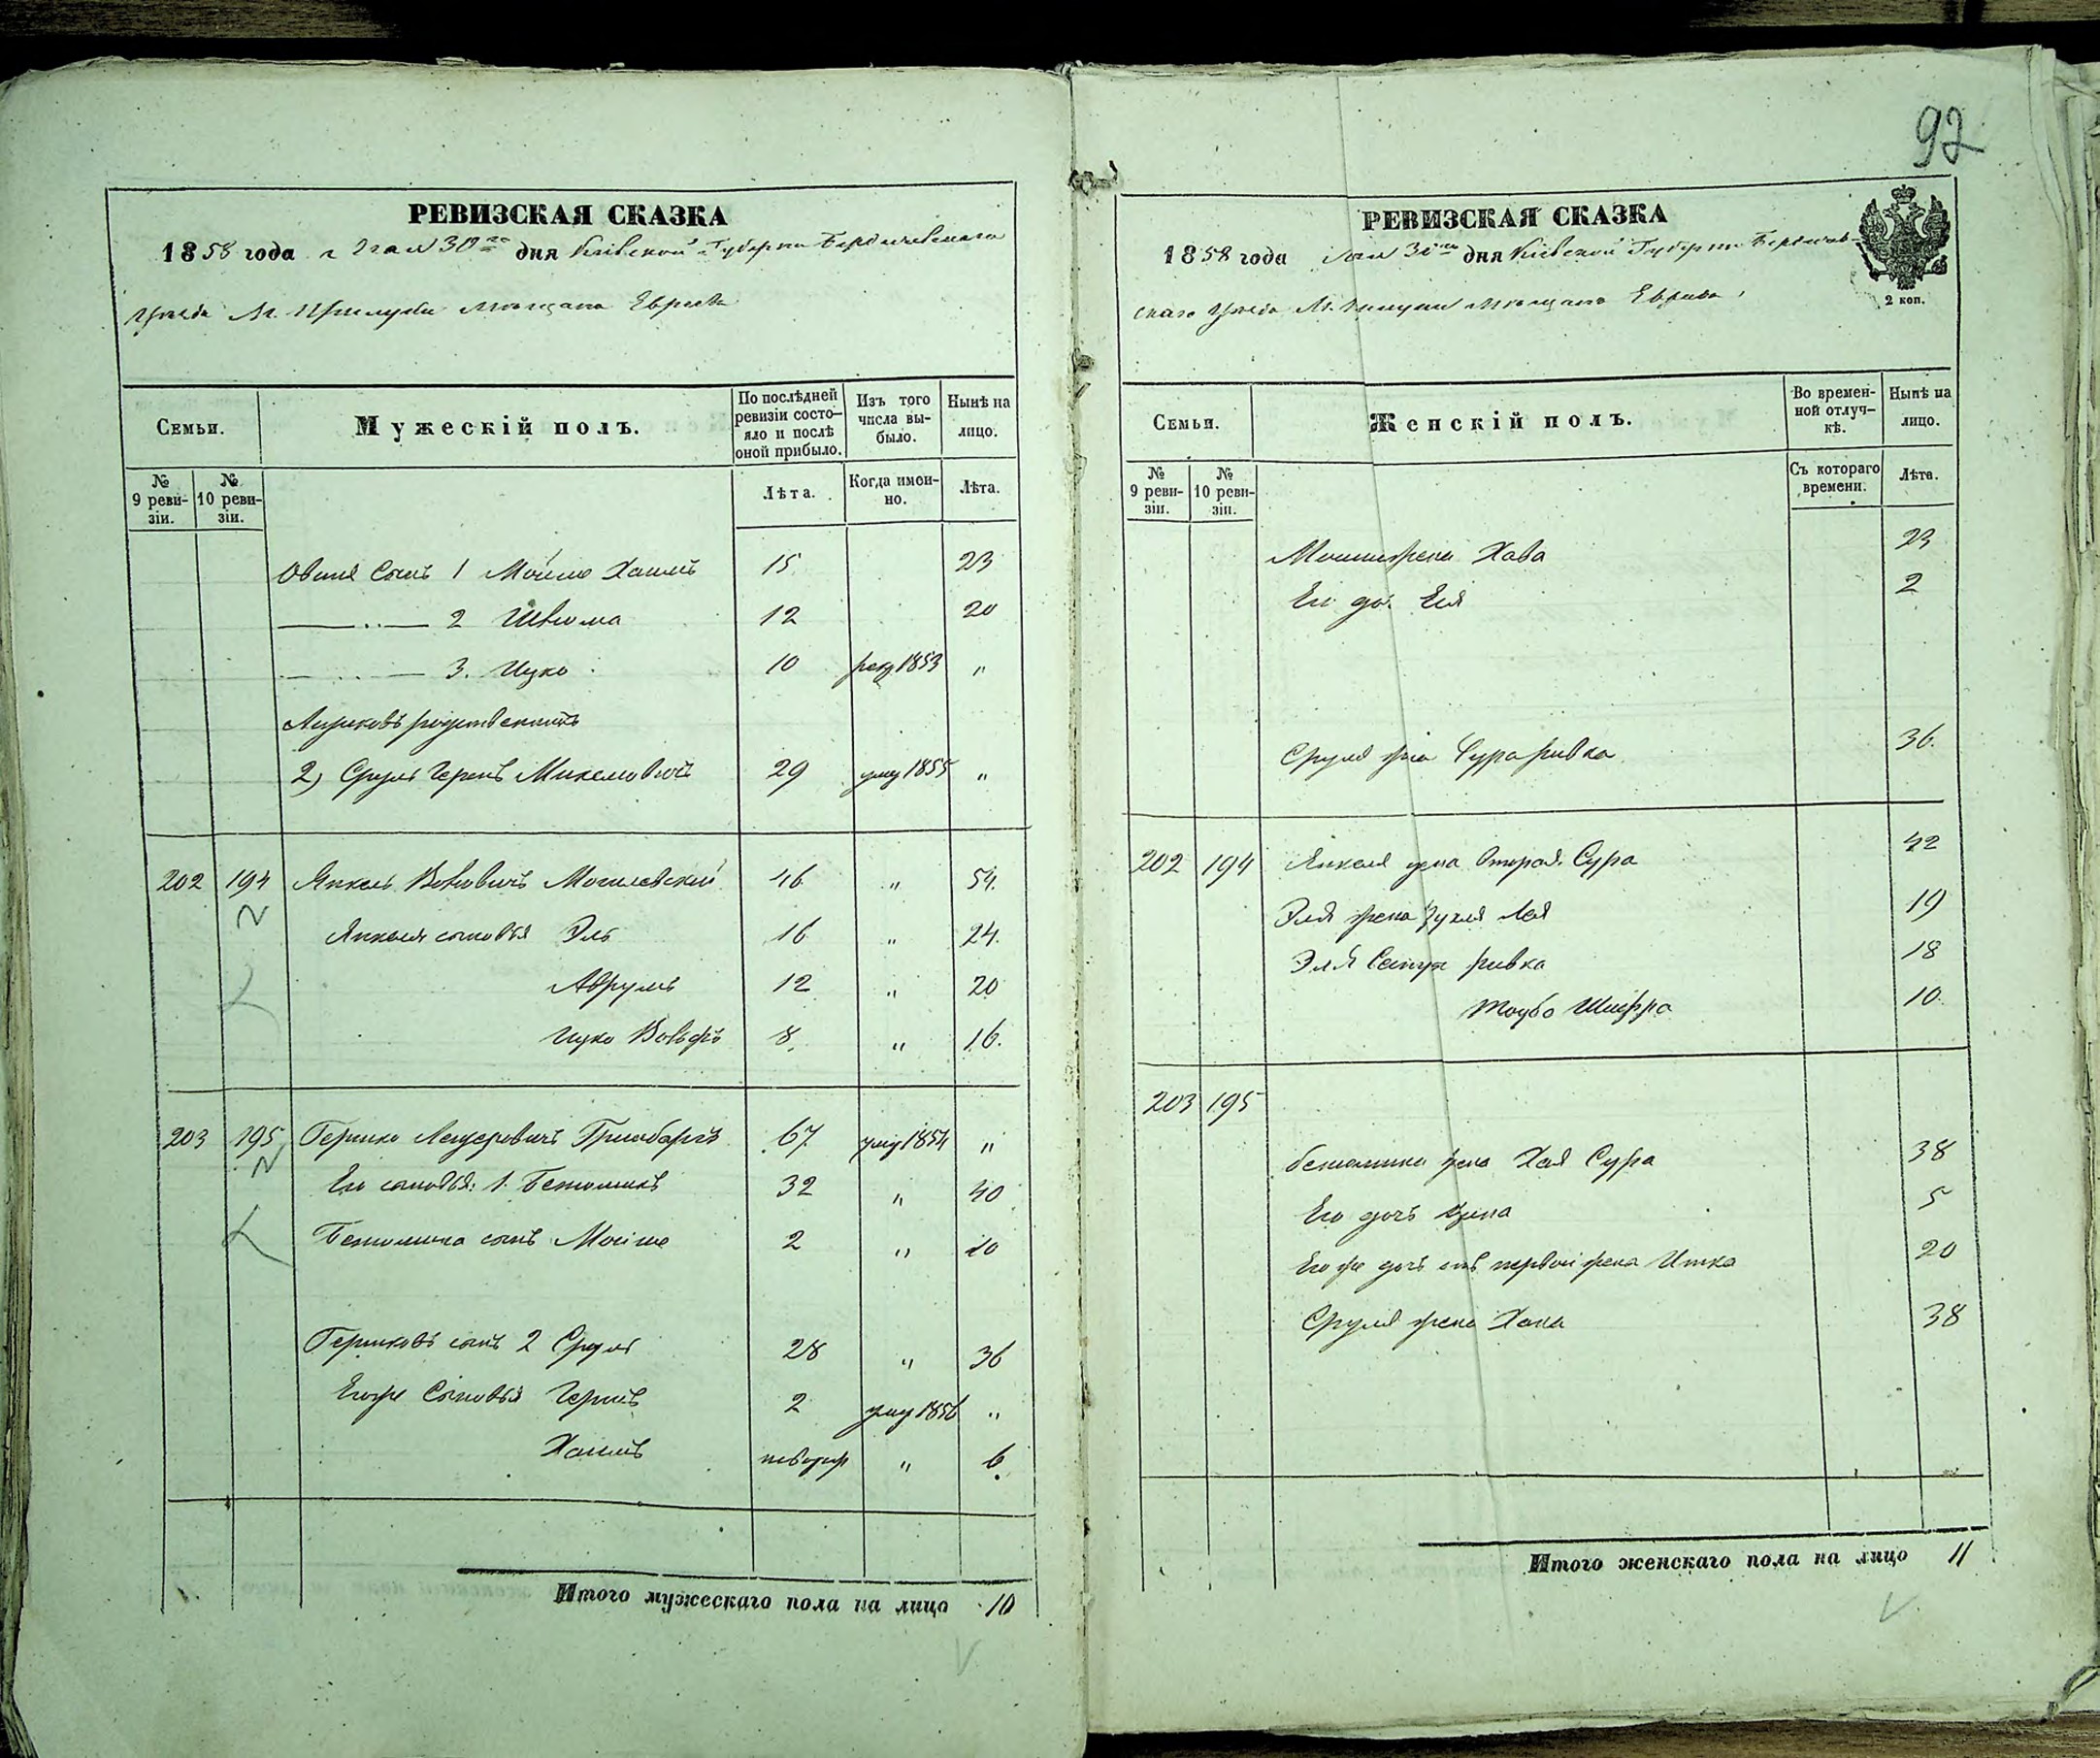 92
РЕВИЗСКАЯ СКАЗКА
1858 года 30го дня Кіевской Губерніи Бердичевскаго
Уѣзда М. Прилуки Мѣщанъ Евреевъ
Семьи.
Мужескій полъ.
По послѣдней ревизіи состо-яло и послѣ оной прибыло.
Изъ того числа вы-было.
Нынѣ на лицо.
№ 9 реви-зіи.
№ 10 реви-зіи.
Лѣта.
Когда имен-но.
Лѣта.
Овшія Сынъ 1 Мойше Хаимъ 15 23
—„— 2 12 20
—„— 3. Ицко 10 рекр 1853 „
родственникъ
2) Сруль Герш Михелевичъ 29 умер 1855 „
202 194 Янкель Вовковичъ Могилевский 46 „ 54.
Янкеля сыновья Эль 16 „ 24.
Аврумъ 12 „ 20
Ицко Вольфъ 8. „ 16.
203 195 Гершко Лейзеровичъ Гринбаргъ 67 умер 1854 „
Его сыновья: 1. Бенюминъ 32 „ 40
Бенюмина сынъ Мойше 2 „ 10
Гершковъ сынъ 2 Сруль 28 „ 36
Егоже Сыновья Гершъ 2 умер 1856 „
Хаимъ новорож „ 6.
Итого мужескаго пола на лицо 10
РЕВИЗСКАЯ СКАЗКА
1858 года 30го дня Кіевской Губерніи Бердичев-
скаго Уѣзда М. Прилуки Мѣщанъ Евреевъ
2 коп.
Семьи.
Женскій полъ.
Во времен-ной отлуч-кѣ.
Нынѣ на лицо.
№ 9 реви-зіи.
№ 10 реви-зіи.
Съ котораго времени.
Лѣта.
Мошки жена Хава 23
Его дочь 2
Сруля жена Сура Ривка 36.
202 194 Янкеля жена вторая Сура 42
Эля жена Лея 19
Эля Сестра Ривка 18
Тауба Шифра 10.
203 195
Бенюмина жена Хая Сура 38
Его дочь 5
Его же дочь отъ первой жены Итка 20
Сруля жена Хана 38
Итого женскаго пола на лицо 11